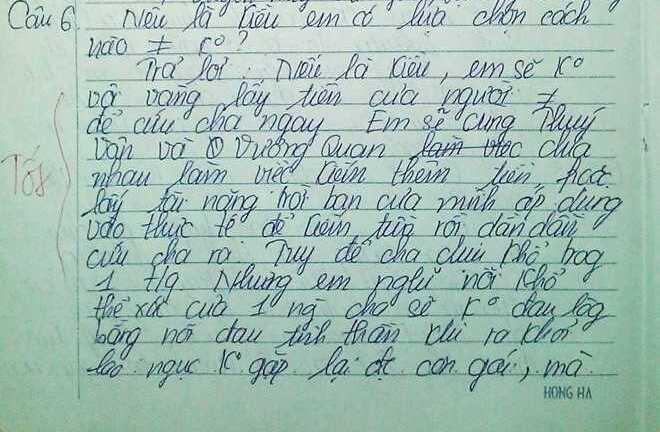 Câu 6. Nếu là Kiều em có lựa chọn cách
nào ≠ k°?
Trả lời: Nếu là Kiều, em sẽ k°
vội vàng lấy tiền của người ≠
để cứu cha ngay Em sẽ cùng Thuý
Vân và Vương Quan làm việc chia
nhau làm việc kiếm thêm tiền hoặc
lấy tài năng trời ban của mình áp dụng
vào thực tế để kiếm tiền rồi dần dần
cứu cha ra Tuy để cha chịu khổ trog
1 t/g Nhưng em nghĩ nỗi khổ
thể xác của 1 ng cha sẽ k° đau lòg
bằng nỗi đau tinh thần khi ra khỏi
lao ngục k° gặp lại đc con gái, mà
Tốt
HONG HA